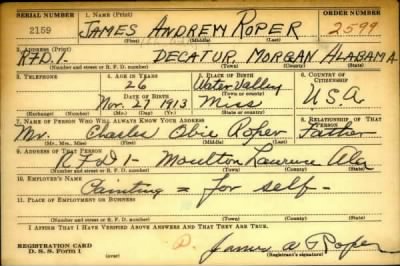 SERIAL NUMBER 1. NAME (Print) ORDER NUMBER
2159 JAMES ANDREW ROPER 2599
(First) (Middle) (Last)
2. ADDRESS (Print)
RFD 1- DECATUR, MORGAN ALABAMA
(Number and street or R. F. D. number) (Town) (County) (State)
3. TELEPHONE 4. AGE IN YEARS 5. PLACE OF BIRTH 6. COUNTRY OF CITIZENSHIP
26 Water Valley
(Town or county)
DATE OF BIRTH
Nov. 27 1913 Miss USA
(Exchange) (Number) (Mo.) (Day) (Yr.) (State or country)
7. NAME OF PERSON WHO WILL ALWAYS KNOW YOUR ADDRESS 8. RELATIONSHIP OF THAT PERSON
Mr. Charles Obie Roper Father
(Mr., Mrs., Miss) (First) (Middle) (Last)
9. ADDRESS OF THAT PERSON
RFD 1- Moulton Lawrence Ala
(Number and street or R. F. D. number) (Town) (County) (State)
10. EMPLOYER'S NAME
Painting = for self -
11. PLACE OF EMPLOYMENT OR BUSINESS
(Number and street or R. F. D. number) (Town) (County) (State)
I AFFIRM THAT I HAVE VERIFIED ABOVE ANSWERS AND THAT THEY ARE TRUE.
REGISTRATION CARD
D. S. S. Form 1 James A Roper
(Registrant's signature)